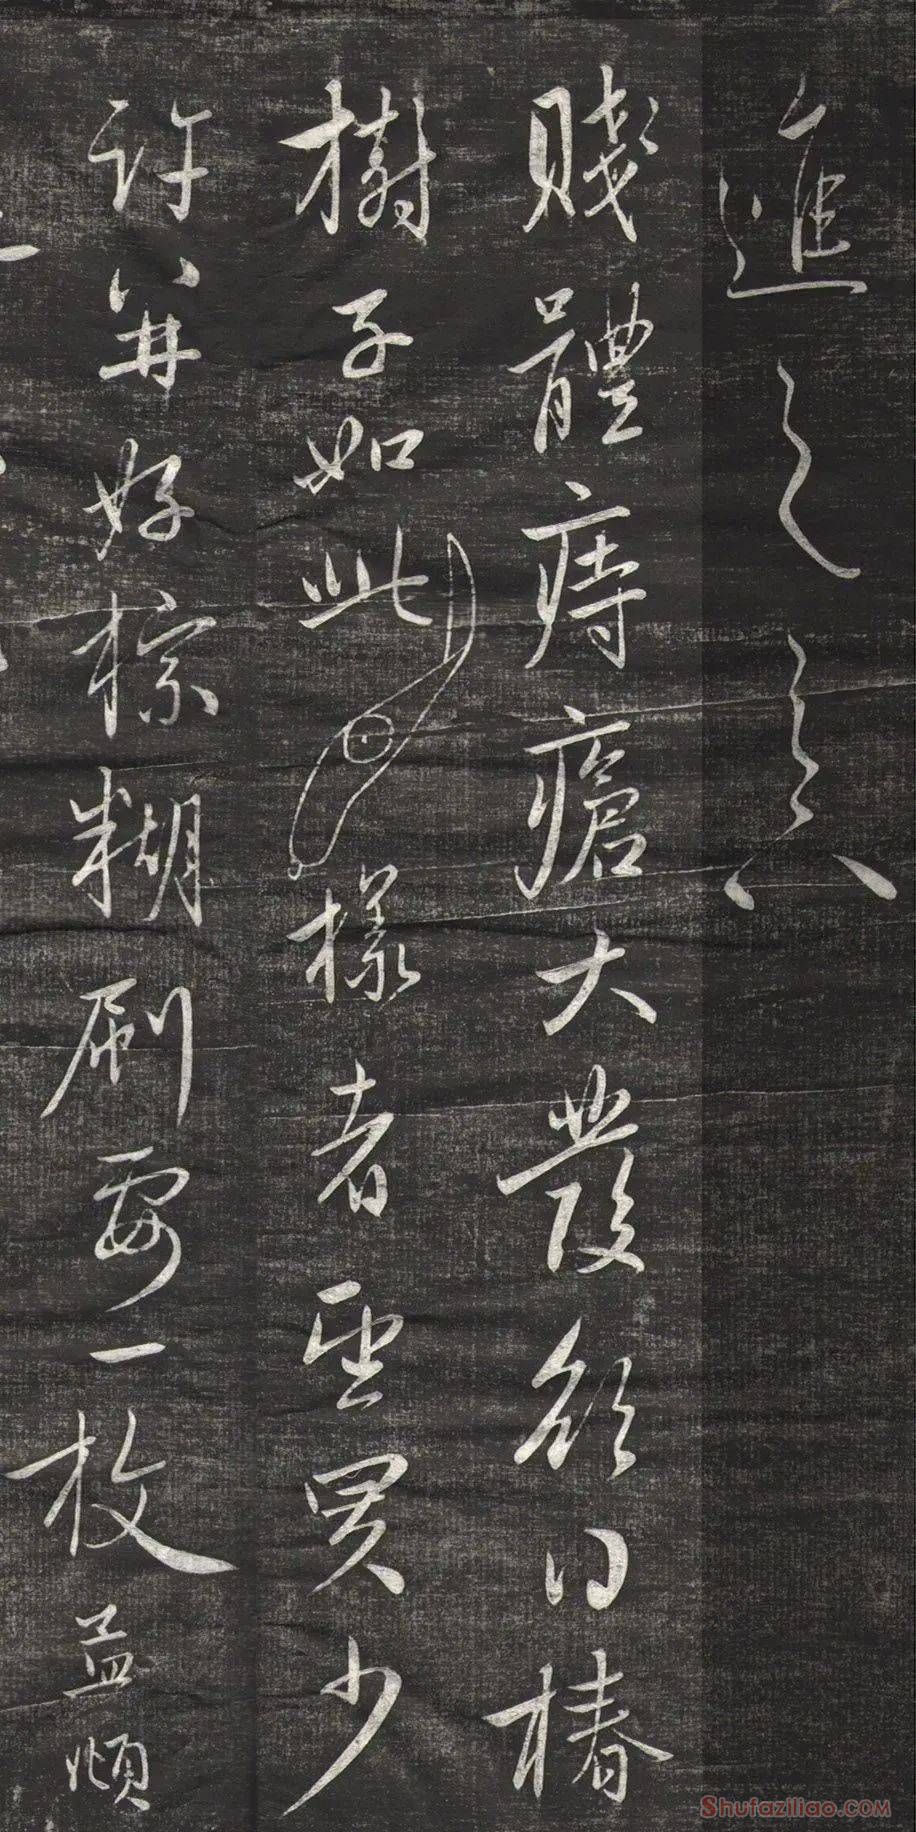 進之
賤體痔瘡大發欲椿
樹子如此樣者望買少
許并好棕糊刷要一枚益煩
Shufaziliao.com